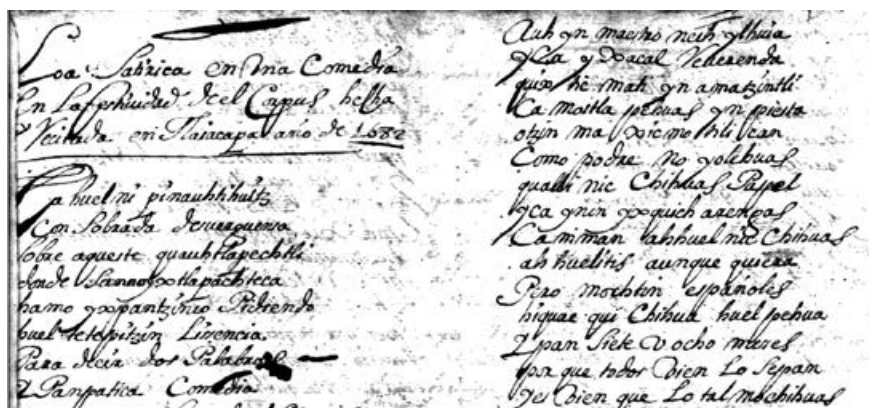 Loa Satirica en Vna Comedia
En La festiuidad de el Corpus hecha
Recitada en Tlaiacapa año de 1682
Ya huel ni pinauhtihuitz
Con Sobrada desuerguensa
Sobre aqueste quauhtlapechtli
donde Sannoyxtlapachteca
hamo yxpantzinco Pidiendo
huel tetepitzin Lisencia
Para decir dos Palabras
Y Panpatica Comedia
Auh yn maestro nech ylhuia
yca y Reuerenda
quix tic mati yn amatzintli
Ca mostla pehuas yn piesta
otzin ma xicmotlilican
Como podre no yolihuas
qualli nic Chihuas Papel
yca ynin arengas
Ca niman ahhuel nic Chihuas
ahhuelitis aunque quiera
Pero mochtin españoles
qui Chihua huel pehua
Y pan Siete V ocho meses
por que todos bien Lo Sepan
Y es bien que Lo tal mochihuas